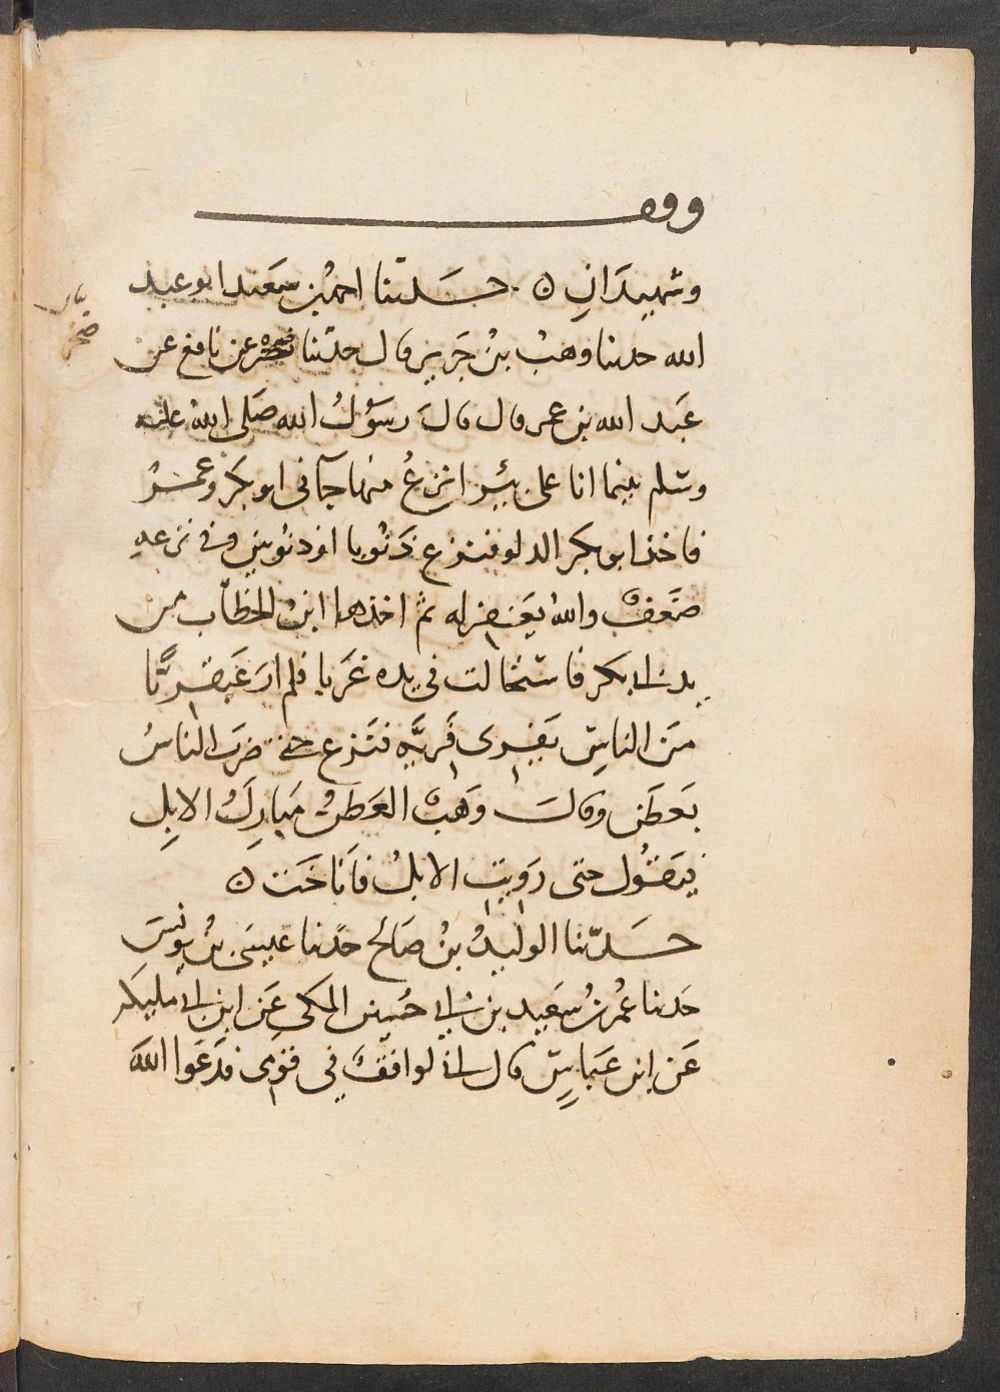 وقف
وشهيدان ه حدثنا احمد بن سعيد ابو عبد
الله حدثنا وهب بن جرير قال حدثنا صخر عن نافع عن
عبد الله بن عمر قال قال رسول الله صلى الله عليه
وسلم بينما انا على بئر انزع منها جآنى ابو بكر وعمر
فاخذ ابو بكر الدلو فنزع ذنوبا او ذنوبين وفى نزعه
ضعف والله يغفر له ثم اخذها ابن الخطاب من
يد ابى بكر فاستحالت فى يده غربا فلم ار عبقريا
من الناس يفرى فريه فنزع حتى ضرب الناس
بعطن وقال وهب العطن مبارك الابل
يقول حتى رويت الابل فاناخت ه
حدثنا الوليد بن صالح حدثنا عيسى بن يونس
حدثنا عمر بن سعيد بن ابى حسين المكى عن ابن ابى مليكه
عن ابن عباس قال انى لواقف فى قوم فدعوا الله
صخر